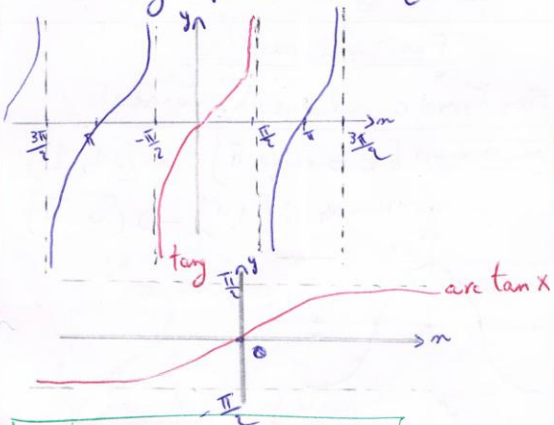 y
3π/2 π -π/2 π/2 π 3π/2 x
tang
y
π/2
arc tan x
x
0
-π/2